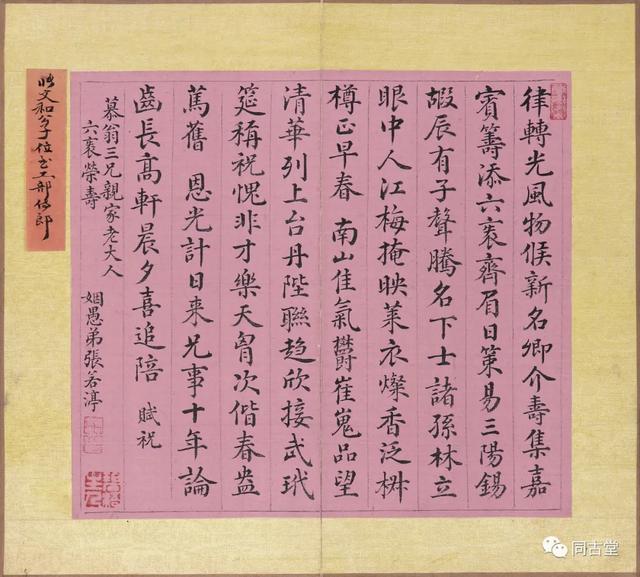 律轉光風物候新名卿介壽集嘉
賓籌添六袠齊眉日策易三陽錫
嘏辰有子聲騰名下士諸孫林立
眼中人江梅掩映萊衣燦香泛椒
樽正早春 南山佳氣鬱崔嵬品望
清華列上台丹陛聯趨欣接武玳
筵稱祝愧非才樂天胷次偕春盎
篤舊 恩光計日来兄事十年論
齒長髙軒晨夕喜追陪 賦祝
慕翁三兄親家老大人
六袠榮壽
姻愚弟張若渟
文和公子位至工部侍郎
同古堂